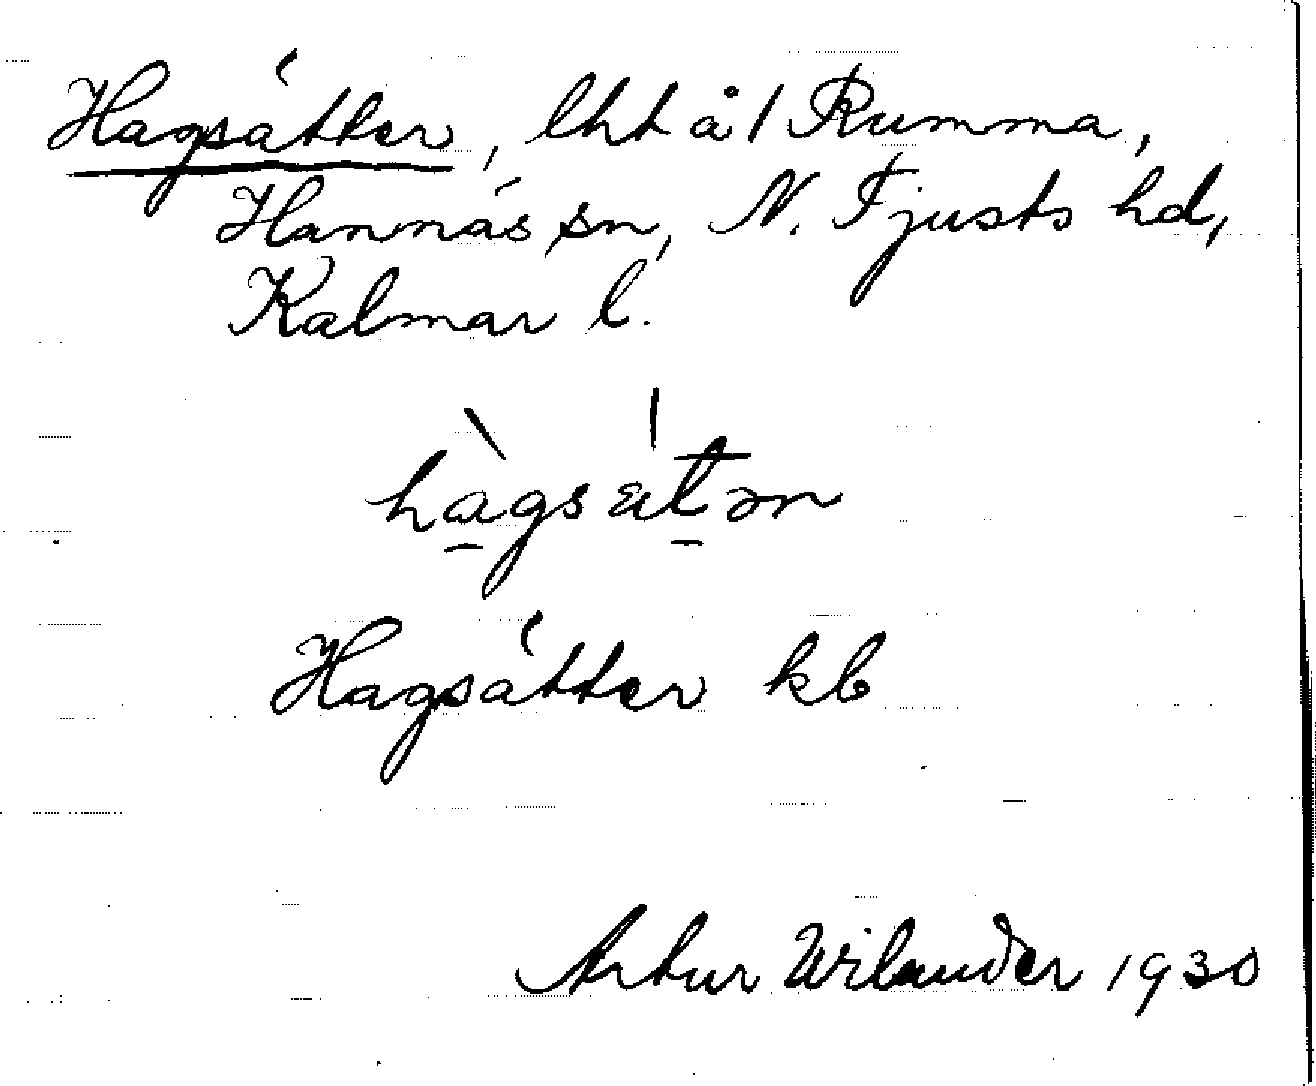 Hagsätter, lht å/ Rumma,
Hannäs sn, N. Tjusts hd,
Kalmar l.
hàgsätər
Hagsätter kb
Artur Wilander 1930